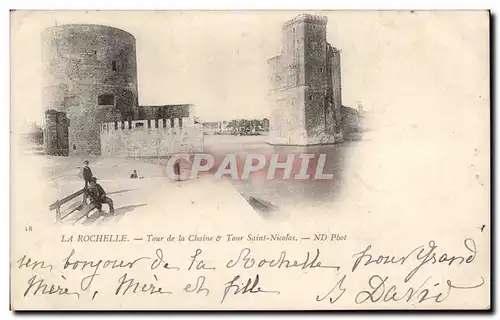 CPAPHIL
18
LA ROCHELLE. — Tour de la Chaîne & Tour Saint-Nicolas. — ND Phot
bonjour de La Rochelle, pour Grand
Mère, Mère et fille B David